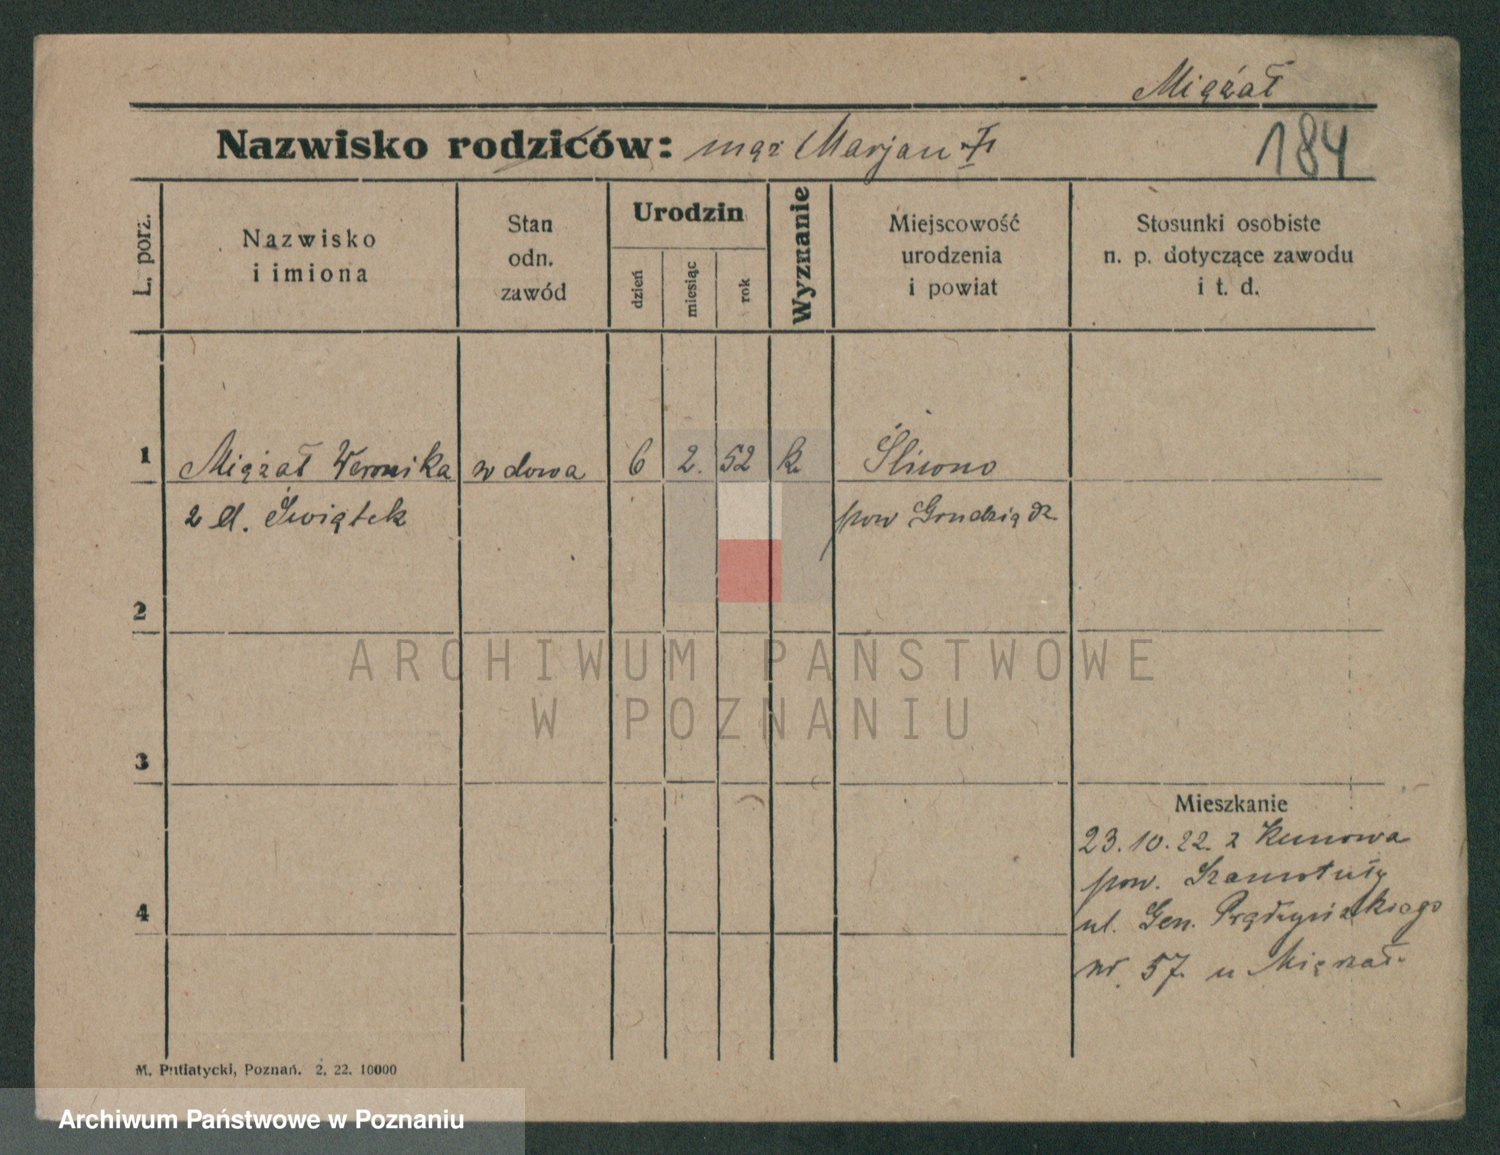 Miążał
Nazwisko rodziców: mąż Marjan
184
L. porz.
Nazwisko
i imiona
Stan
odn.
zawód
Urodzin
dzień
miesiąc
rok
Wyznanie
Miejscowość
urodzenia
i powiat
Stosunki osobiste
n. p. dotyczące zawodu
i t. d.
1 Miążał Weronika wdowa 6 2. 52 k. Śliwno
z d. Świątek pow Grudziądz
2
3
4
Mieszkanie
23.10.22. z Kunowa
pow. Szamotuły
ul. Gen. Prądzyńskiego
nr. 57. u
M. Putiatycki, Poznań. 2. 22. 10000
ARCHIWUM PAŃSTWOWE
W POZNANIU
Archiwum Państwowe w Poznaniu